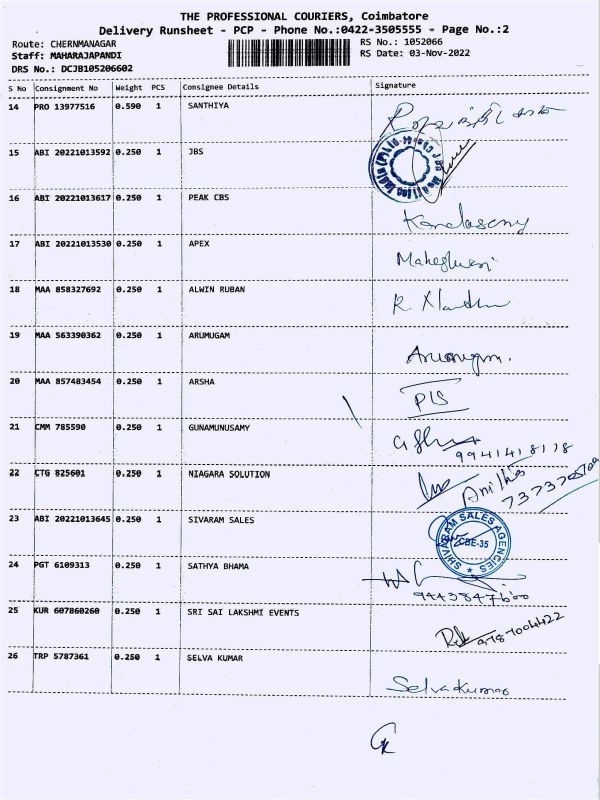 THE PROFESSIONAL COURIERS, Coimbatore
Delivery Runsheet - PCP - Phone No.:0422-3505555 - Page No.:2
Route: CHERNMANAGAR
RS No.: 1052066
Staff: MAHARAJAPANDI
RS Date: 03-Nov-2022
DRS No.: DCJB105206602
S No Consignment No Weight PCS Consignee Details Signature
14 PRO 13977516 0.590 1 SANTHIYA
15 ABI 20221013592 0.250 1 JBS
16 ABI 20221013617 0.250 1 PEAK CBS
17 ABI 20221013530 0.250 1 APEX
Maheshwari
18 MAA 858327692 0.250 1 ALWIN RUBAN
19 MAA 563390362 0.250 1 ARUMUGAM
Arumugm.
20 MAA 857483454 0.250 1 ARSHA
21 CMM 785590 0.250 1 GUNAMUNUSAMY
9941418178
22 CTG 825601 0.250 1 NIAGARA SOLUTION
Anitha
23 ABI 20221013645 0.250 1 SIVARAM SALES
SHIVARAM SALES AGENCIES
CBE-35
24 PGT 6109313 0.250 1 SATHYA BHAMA
9443847600
25 KUR 607860260 0.250 1 SRI SAI LAKSHMI EVENTS
9787004422
26 TRP 5787361 0.250 1 SELVA KUMAR
Selvakumar